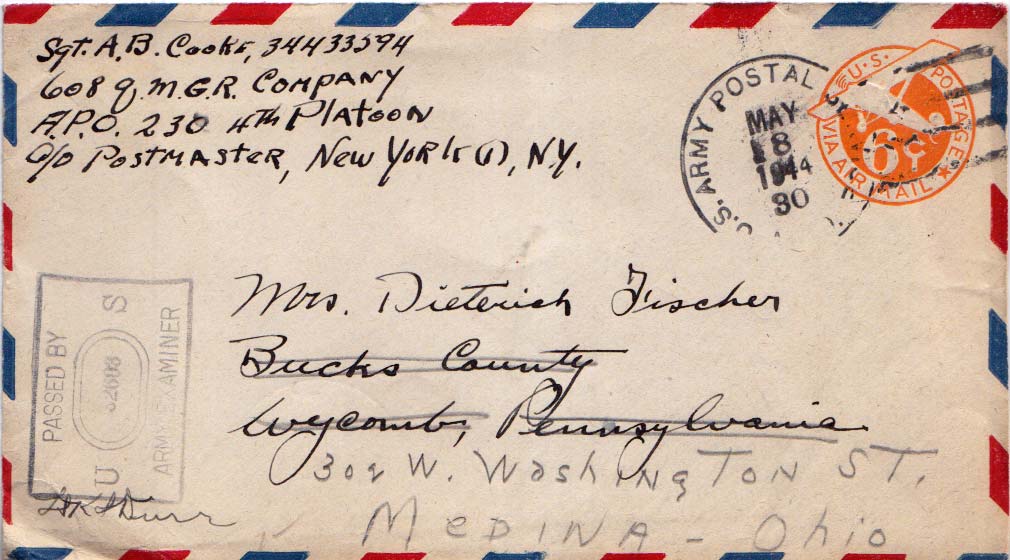 Sgt. A.B. Cooke, 34433594
608 Q.M.G.R. Company
A.P.O. 230 4th Platoon
c/o Postmaster, New York (1), N.Y.
U.S. ARMY POSTAL
MAY
8
1944
30
U.S. POSTAGE
VIA AIR MAIL
6¢
Mrs. Dieterich Fischer
Bucks County
Wycomb, Pennsylvania
302 W. Washington St.
Medina - Ohio
PASSED BY
U S
32608
ARMY EXAMINER